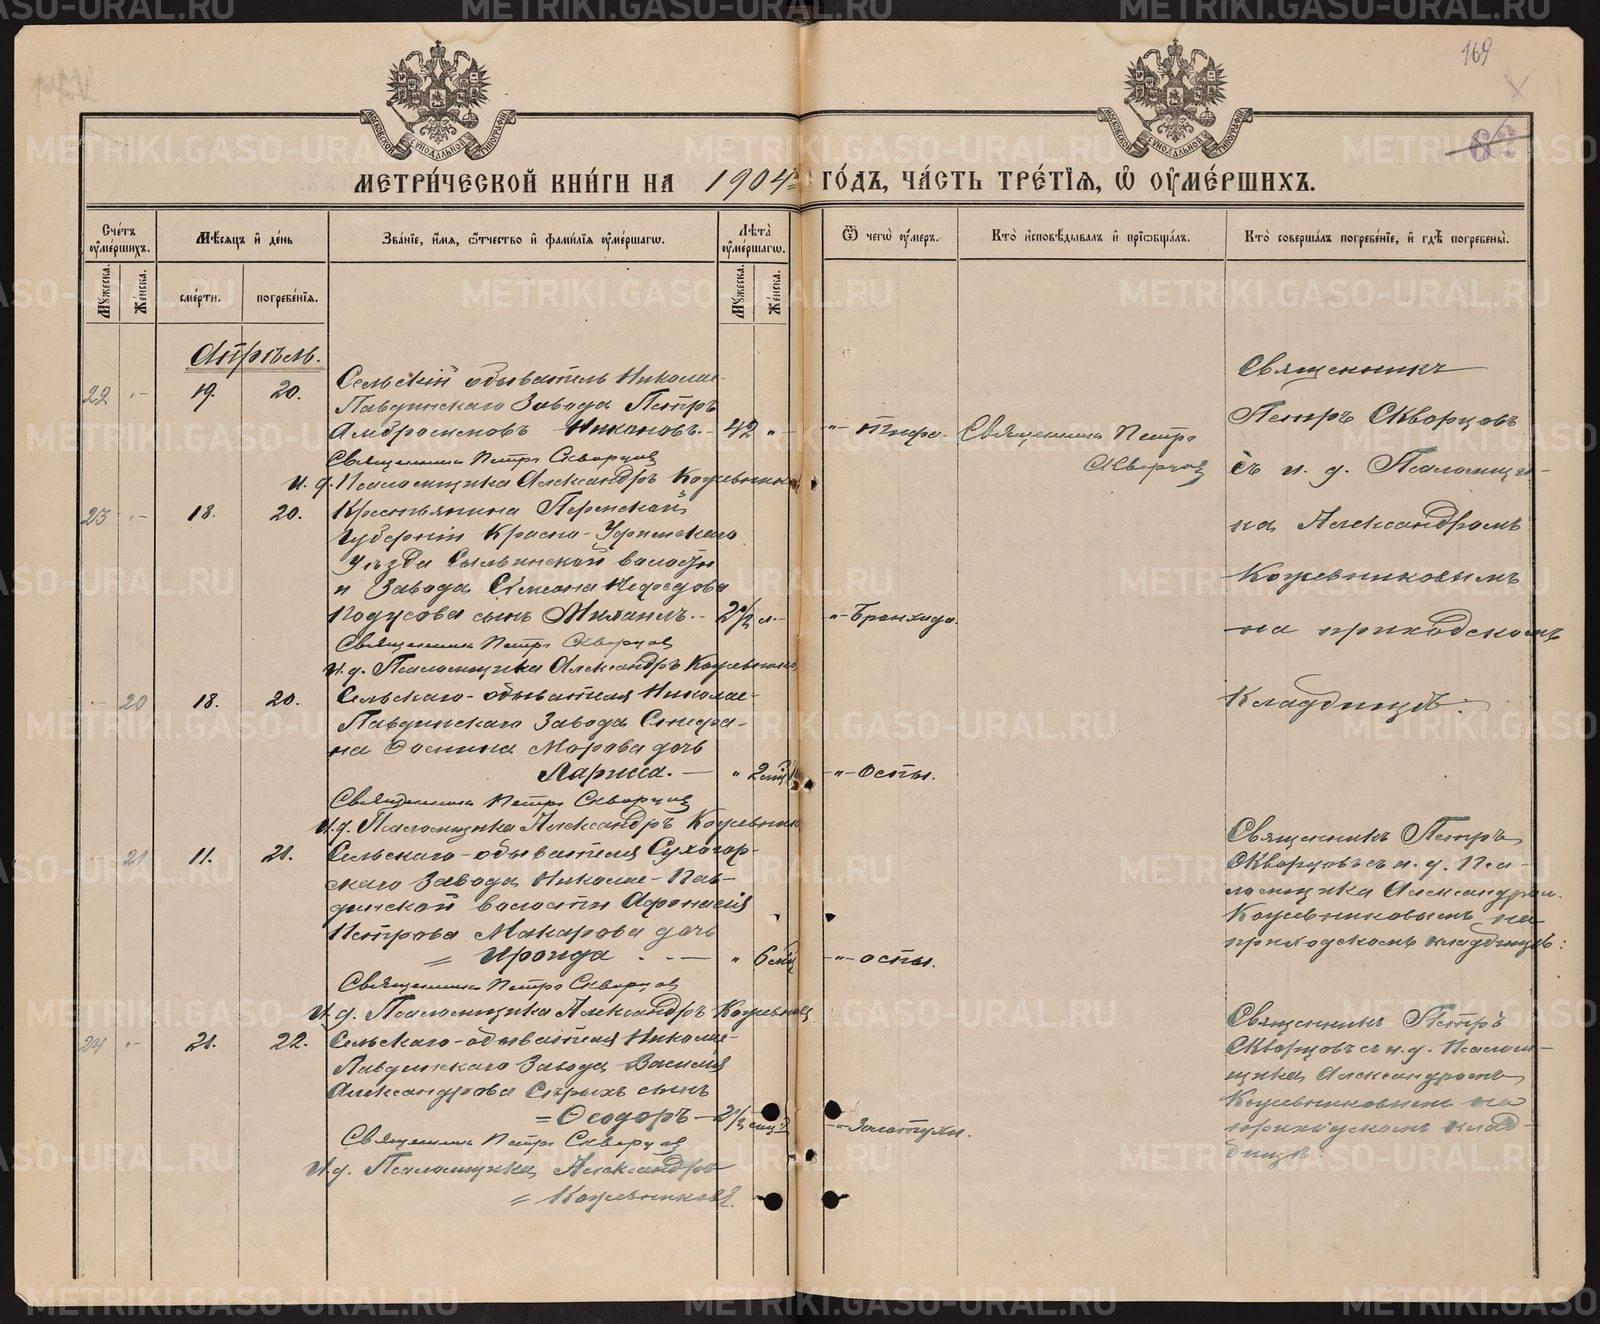 169
62
МЕТРИ́ЧЕСКОЙ КНИ́ГИ НА 1904 ГО́ДЪ, ЧА́СТЬ ТРЕ́ТІѦ, Ѡ ОУМЕ́РШИХЪ.
Сче́тъ оуме́ршихъ.
Мѣсѧцъ и де́нь
Зва́ніе, и́мѧ, ѻ́тчество и фами́лїѧ оуме́ршагѡ.
Лѣ́та оуме́ршагѡ.
Ѿ чегѡ̀ оу́меръ.
Кто̀ и҆сповѣ́дывалъ и прїѡбща́лъ.
Кто̀ соверша́лъ погребе́нїе, и гдѣ̀ погребены̀.
Мꙋжеска.
Же́нска.
сме́рти.
погребе́нїѧ.
Мꙋжеска.
Же́нска.
Апрѣль.
22 - 19. 20.
Сельскій обыватель Николае-
Павдинскаго Завода Петръ
Амвросимовъ Никоновъ. - 42 „ -
Священникъ Петръ Скворцов
И. д. Псаломщика Александръ Кожевников
„- Тифа.
Священникъ Петръ
Скворцов
Священникъ
Петръ Скворцовъ
съ и. д. Псаломщи-
ка Александромъ
Кожевниковымъ
на приходскомъ
Кладбищѣ.
23 - 18. 20.
Крестьянина Пермской
губерніи Красно-Уфимскаго
уѣзда Сылвинской волости
и Завода Симеона Нефедова
сынъ Михаилъ. - 2½ л. -
Священникъ Петръ Скворцов
И. д. Псаломщика Александръ Кожевников
„- Бронхида.
- 20 18. 20.
Сельскаго-обывателя Николае-
Павдинскаго Завода Стефа-
на Фомина Морова дочь
Лариса. - „ 2
Священникъ Петръ Скворцов
И. д. Псаломщика Александръ Кожевник
„- Оспы.
21 11. 21.
Сельскаго-обывателя Сухогор-
скаго Завода Николае-Пав-
динской волости Афонасія
Петрова Макарова дочь
= Ираида. - „ 6 мѣс
Священникъ Петръ Скворцов
И. д. Псаломщика Александръ Кожевников
„- оспы.
Священникъ Петръ
Скворцовъ съ и. д. Пса-
ломщика Александром.
Кожевниковымъ на
приходскомъ кладбищѣ:
24 - 21. 22.
Сельскаго-обывателя Николае-
Павдинскаго Завода Василія
Александрова Сѣрыхъ сынъ
= Ѳеодоръ -
Священникъ Петръ Скворцов
И. д. Псаломщика Александръ
= Кожевниковъ.
„- Золотухи.
Священникъ Петръ
Скворцовъ съ и. д. Псалом-
щика Александромъ
Кожевниковымъ на
приходскомъ клад-
бищѣ.
METRIKI.GASO-URAL.RU